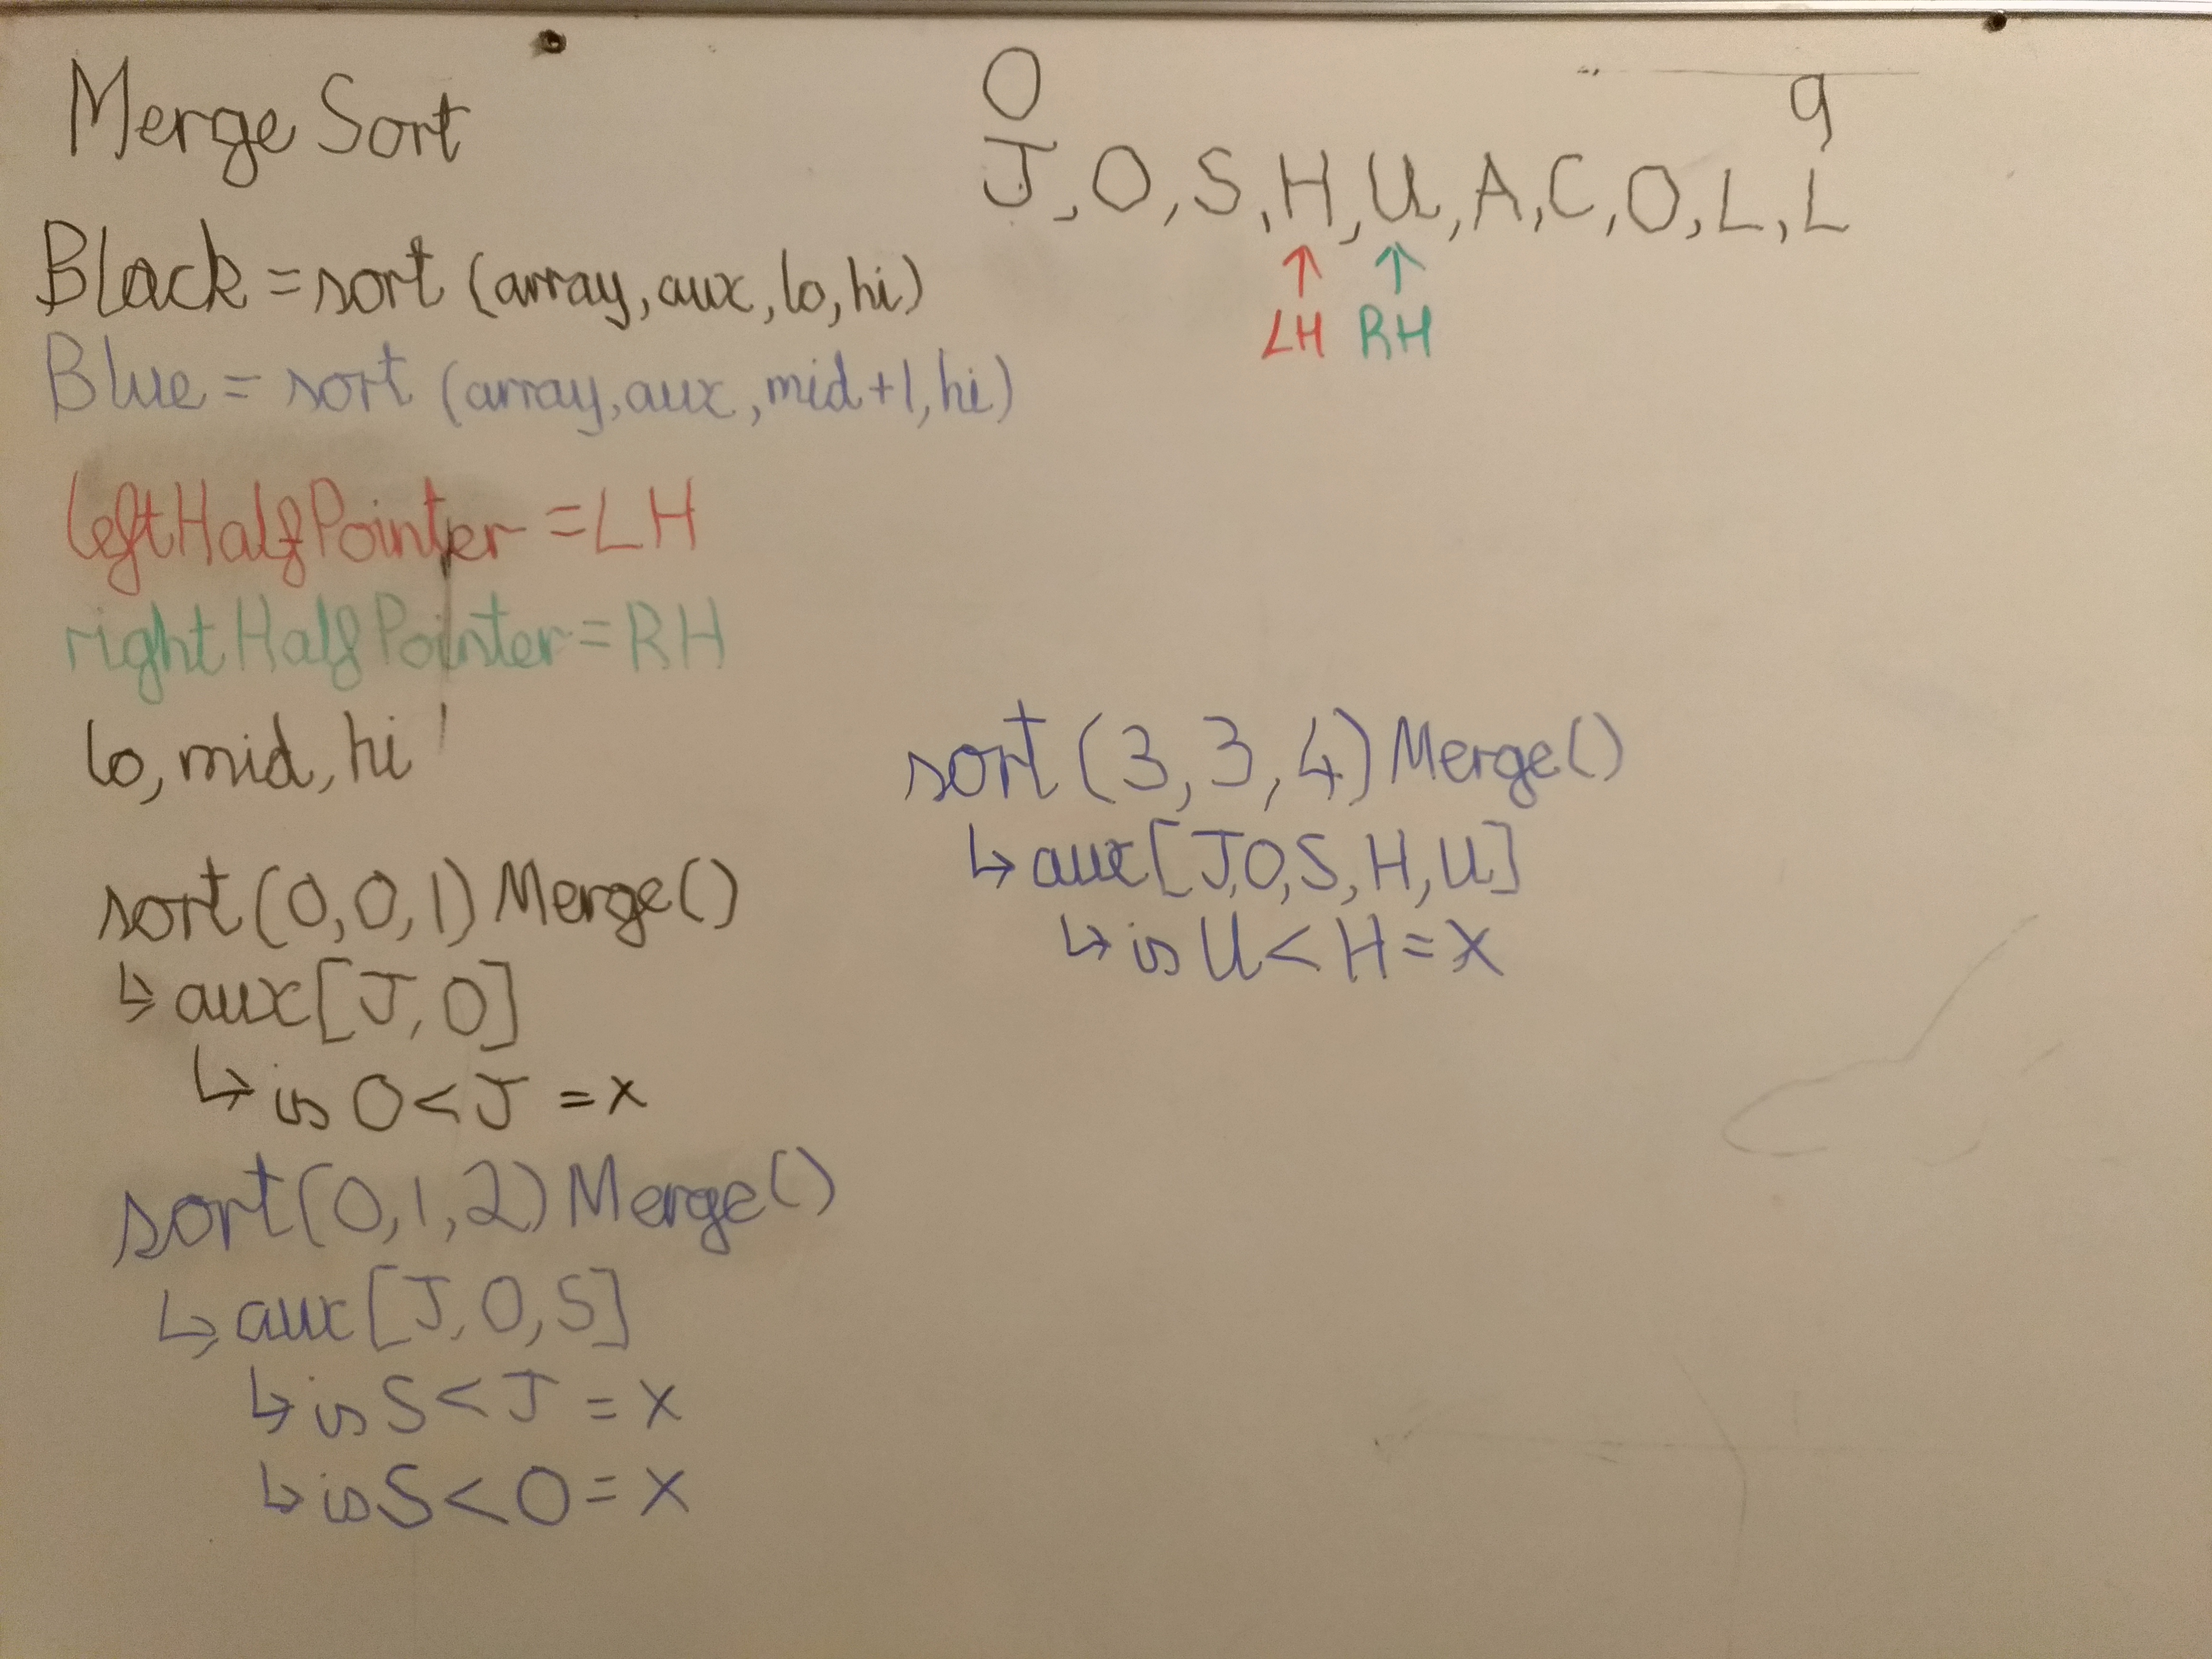 Merge Sort
Black = sort (array, aux, lo, hi)
Blue = sort (array, aux, mid+1, hi)
leftHalfPointer = LH
rightHalfPointer = RH
lo, mid, hi
sort(0,0,1) Merge()
↳ aux[J,O]
↳ is O < J = x
sort(0,1,2) Merge()
↳ aux[J,O,S]
↳ is S < J = x
↳ is S < O = x
0 9
J,O,S,H,U,A,C,O,L,L
↑ ↑
LH RH
sort(3,3,4) Merge()
↳ aux[J,O,S,H,U]
↳ is U < H = x